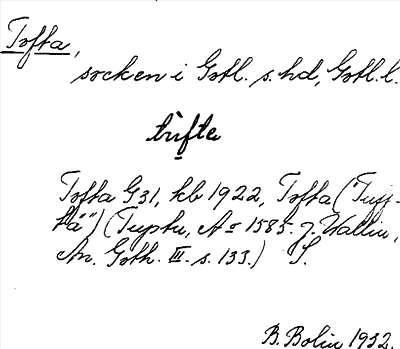 Tofta,
socken i Gotl. s. hd, Gotl. l.
tùfte
Tofta G31, kb 1922, Tofta ("Tuff-
ta") (Tupta, Ao 1585. J. Wallin,
An. Goth. III. s. 133.) S.
B. Bolin 1932.